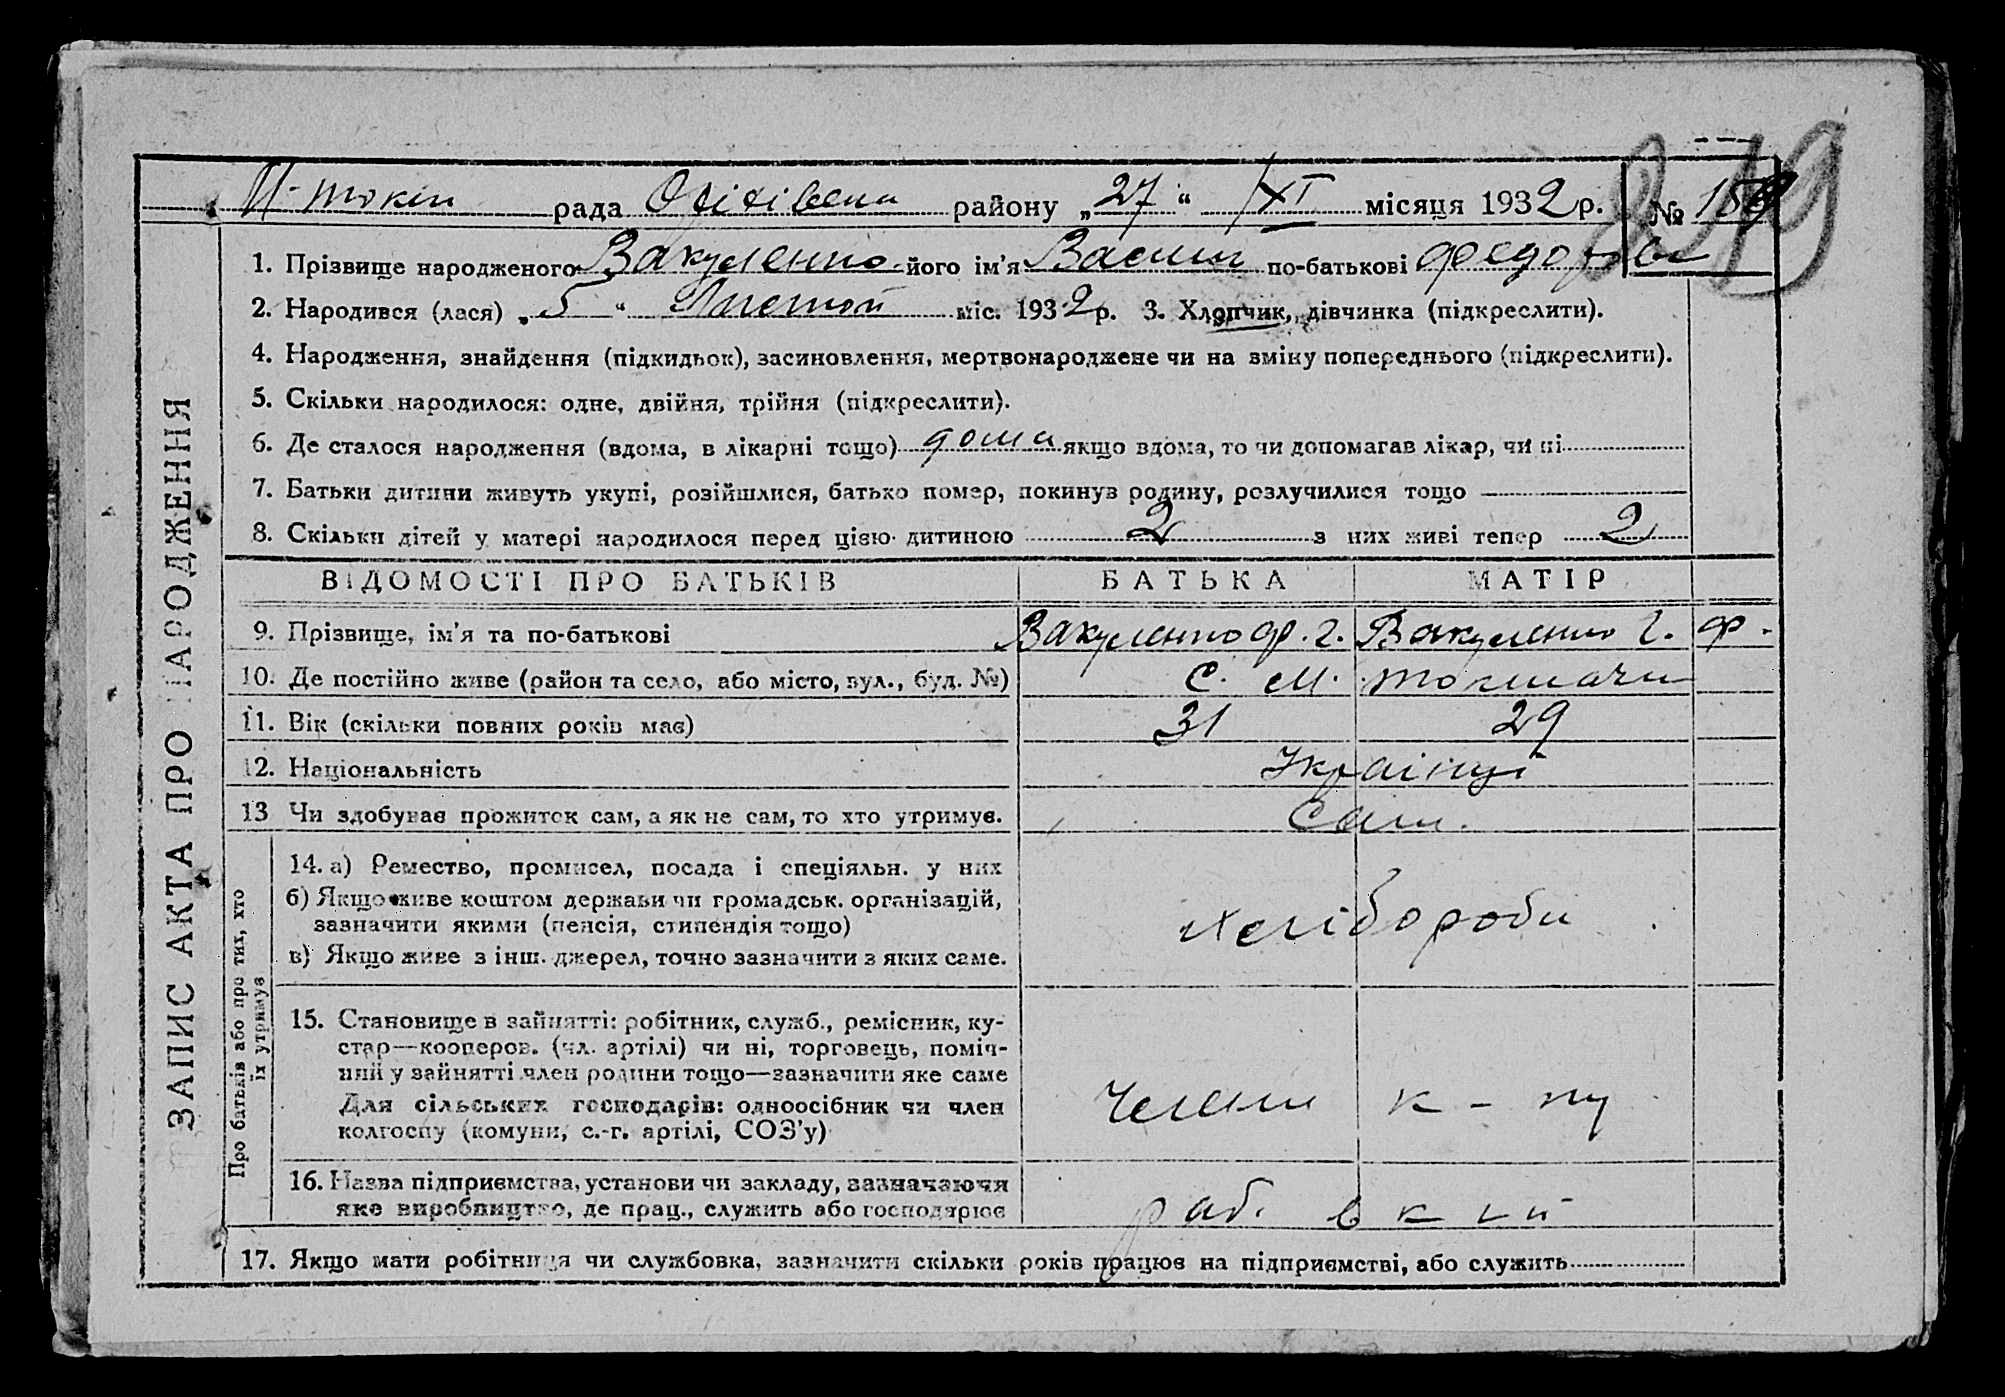 819
М-токм рада Оріхівськ району „27“ XI місяця 1932 р. № 159
1. Прізвище народженого Вакуленко його ім’я Васил по-батькові Федоров
2. Народився (лася) „5“ міс. 1932 р. 3. Хлопчик, дівчинка (підкреслити).
4. Народження, знайдення (підкидьок), засиновлення, мертвонароджене чи на зміну попереднього (підкреслити).
5. Скільки народилося: одне, двійня, трійня (підкреслити).
6. Де сталося народження (вдома, в лікарні тощо) дома якщо вдома, то чи допомагав лікар, чи ні
7. Батьки дитини живуть укупі, розійшлися, батько помер, покинув родину, розлучилися тощо
8. Скільки дітей у матері народилося перед цією дитиною 2 з них живі тепер 2
ЗАПИС АКТА ПРО НАРОДЖЕННЯ
ВІДОМОСТІ ПРО БАТЬКІВ БАТЬКА МАТІР
9. Прізвище, ім’я та по-батькові Вакуленко Ф. Г. Вакуленко Г. Ф.
10. Де постійно живе (район та село, або місто, вул., буд. №) С. М. Токмачи
11. Вік (скільки повних років має) 31 29
12. Національність Українці
13 Чи здобуває прожиток сам, а як не сам, то хто утримує. Сам.
Про батьків або про тих, хто
їх утримує
14. а) Ремество, промисел, посада і спеціяльн. у них
б) Якщо живе коштом держави чи громадськ. організацій,
зазначити якими (пенсія, стипендія тощо)
в) Якщо живе з інш. джерел, точно зазначити з яких саме.
хлібороби
15. Становище в зайнятті: робітник, служб., ремісник, ку-
стар—кооперов. (чл. артілі) чи ні, торговець, поміч-
ний у зайнятті член родини тощо—зазначити яке саме
Для сільських господарів: одноосібник чи член
колгоспу (комуни, с.-г. артілі, СОЗ’у)
Члени к-пу
16. Назва підприємства, установи чи закладу, зазначаючи
яке виробництво, де прац., служить або господарює
раб. в к
17. Якщо мати робітниця чи службовка, зазначити скільки років працює на підприємстві, або служить